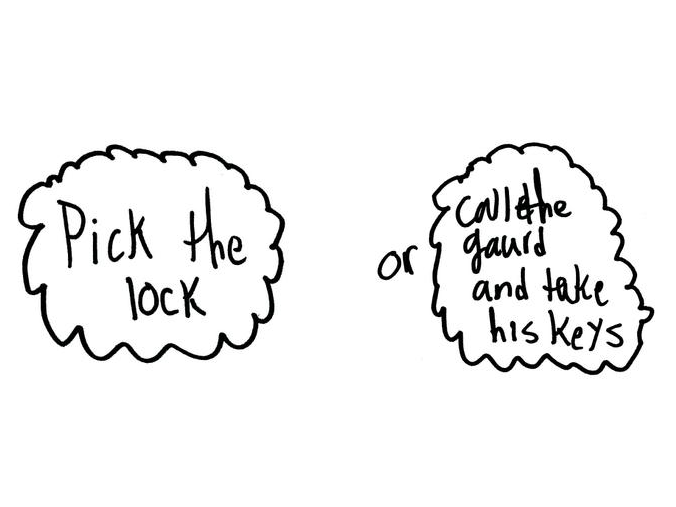 Pick the
lock
or
call the
gaurd
and take
his keys